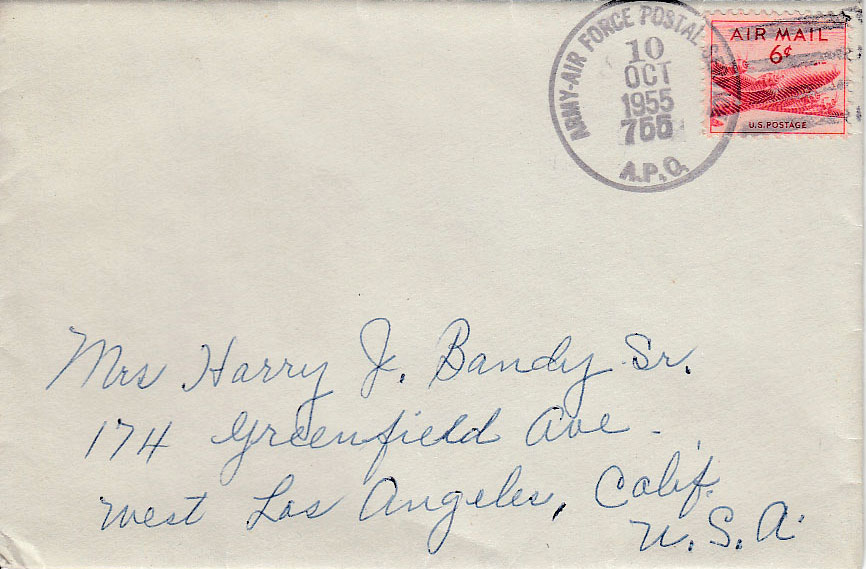 ARMY-AIR FORCE POSTAL
10
OCT
1955
755
A.P.O.
AIR MAIL
6¢
U.S. POSTAGE
Mrs Harry J. Bandy Sr.
174 Greenfield Ave.
West Los Angeles, Calif.
U.S.A.